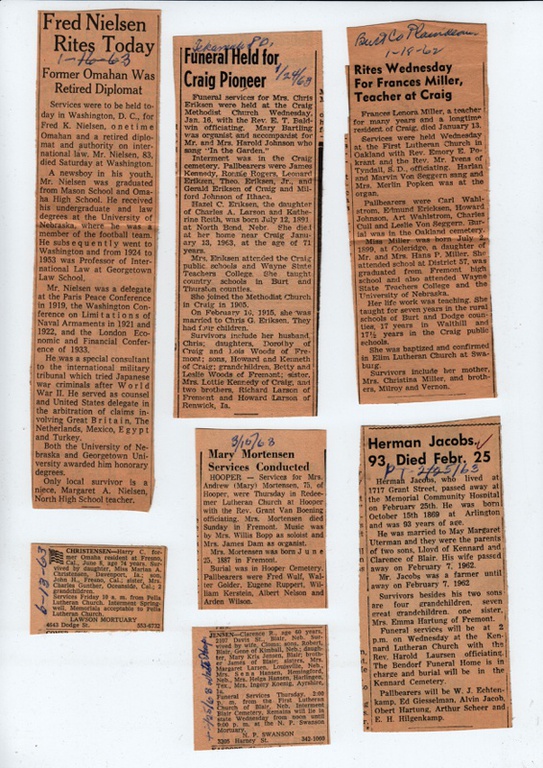 Fred Nielsen
Rites Today
1-16-63
Former Omahan Was
Retired Diplomat
Services were to be held to-
day in Washington, D. C., for
Fred K. Nielsen, onetime
Omahan and a retired diplo-
mat and authority on inter-
national law. Mr. Nielsen, 83,
died Saturday at Washington.
A newsboy in his youth,
Mr. Nielsen was graduated
from Mason School and Oma-
ha High School. He received
his undergraduate and law
degrees at the University of
Nebraska, where he was a
member of the football team.
He subsequently went to
Washington and from 1924 to
1953 was Professor of Inter-
national Law at Georgetown
Law School.
Mr. Nielsen was a delegate
at the Paris Peace Conference
in 1919, the Washington Con-
ference on Limitations of
Naval Armaments in 1921 and
1922, and the London Eco-
nomic and Financial Confer-
ence of 1933.
He was a special consultant
to the international military
tribunal which tried Japanese
war criminals after World
War II. He served as counsel
and United States delegate in
the arbitration of claims in-
volving Great Britain, The
Netherlands, Mexico, Egypt
and Turkey.
Both the University of Ne-
braska and Georgetown Uni-
versity awarded him honorary
degrees.
Only local survivor is a
niece, Margaret A. Nielsen,
North High School teacher.
6-13-63
CHRISTENSEN—Harry C. for-
mer Omaha resident at Fresno,
Cal., June 9, age 74 years. Sur-
vived by daughter, Miss Marian A.
Christensen, Davenport, Ia.; son,
John H., Fresno, Cal.; sister, Mrs.
Charles Gunther, Oceanside, Cal.;
grandchildren.
Services Friday 10 a.m. from Pella
Lutheran Church. Interment Spring-
well. Memorials acceptable to Pella
Lutheran Church.
LAWSON MORTUARY
4043 Dodge St. 553-6732
1/24/63
Funeral Held for
Craig Pioneer
Funeral services for Mrs. Chris
Eriksen were held at the Craig
Methodist Church Wednesday,
Jan. 16, with the Rev. E. T. Bald-
win officiating. Mary Hartling
was organist and accompanist for
Mr. and Mrs. Harold Johnson who
sang "In the Garden."
Interment was in the Craig
cemetery. Pallbearers were James
Kennedy, Ronnie Rogers, Leonard
Eriksen, Theo. Eriksen, Jr., and
Gerald Eriksen of Craig and Mil-
ford Johnson of Ithaca.
Hazel C. Eriksen, the daughter
of Charles A. Larson and Kathe-
rine Reith, was born July 12, 1891
at North Bend, Nebr. She died
at her home near Craig Janu-
ary 13, 1963, at the age of 71
years.
Mrs. Eriksen attended the Craig
public schools and Wayne State
Teachers College. She taught
country schools in Burt and
Thurston counties.
She joined the Methodist Church
in Craig in 1905.
On February 16, 1915, she was
married to Chris G. Eriksen. They
had four children.
Survivors include her husband,
Chris; daughters, Dorothy of
Craig and Lois Woods of Fre-
mont; sons, Howard and Kenneth
of Craig; grandchildren, Betty and
Leslie Woods of Fremont; sister,
Mrs. Lottie Kennedy of Craig, and
two brothers, Richard Larson of
Fremont and Howard Larson of
Renwick, Ia.
3/10/63
Mary Mortensen
Services Conducted
HOOPER — Services for Mrs.
Andrew (Mary) Mortensen, 75, of
Hooper, were Thursday in Redee-
mer Lutheran Church at Hooper
with the Rev. Grant Van Boening
officiating. Mrs. Mortensen died
Sunday in Fremont. Music was
by Mrs. Willis Bopp as soloist and
Mrs. James Dam as organist.
Mrs. Mortensen was born June
25, 1887 in Fremont.
Burial was in Hooper Cemetery.
Pallbearers were Fred Wulf, Wal-
ter Golder, Eugene Ruppert, Wil-
liam Kerstein, Albert Nelson and
Arden Wilson.
JENSEN—Clarence R., age 60 years,
of Davis St., Blair, Neb. Sur-
vived by wife, Clema; sons, Robert,
Blair, Gene of Kimball, Neb.; daugh-
ter, Mary Kris Jensen, Blair; brother
James of Blair; sisters, Mrs.
Margaret Larsen, Louisville, Neb.,
Mrs. Sena Hansen, Hemingford,
Neb., Mrs. Helga Hansen, Harlingen,
Tex., Mrs. Ingery Koenig, Ayrshire,
Ia.
Funeral Services Thursday, 2:00
p. m. from the First Lutheran
Church of Blair, Neb. Interment
Blair Cemetery. Remains will lie in
state Wednesday from noon until
9:00 p. m. at the N. P. Swanson
Mortuary.
N. P. SWANSON
3205 Harney St. 342-1069
Burt Co Plaindealer
1-18-62
Rites Wednesday
For Frances Miller,
Teacher at Craig
Frances Lenora Miller, a teacher
for many years and a longtime
resident of Craig, died January 13.
Services were held Wednesday
at the First Lutheran Church in
Oakland with Rev. Emory E. Po-
krant and the Rev. Mr. Ivens of
Tyndall, S. D., officiating. Harlan
and Marvin Von Seggern sang and
Mrs. Merlin Popken was at the
organ.
Pallbearers were Carl Wahl-
strom, Edmund Erickson, Howard
Johnson, Art Wahlstrom, Charles
Cull and Leslie Von Seggern. Bur-
ial was in the Oakland cemetery.
Miss Miller was born July 4,
1899, at Coleridge, a daughter of
Mr. and Mrs. Hans P. Miller. She
attended school at District 57, was
graduated from Fremont high
school and also attended Wayne
State Teachers College and the
University of Nebraska.
Her life work was teaching. She
taught for seven years in the rural
schools of Burt and Dodge coun-
ties, 17 years in Walthill and
17½ years in the Craig public
schools.
She was baptized and confirmed
in Elim Lutheran Church at Swa-
burg.
Survivors include her mother,
Mrs. Christina Miller, and broth-
ers, Milroy and Vernon.
Herman Jacobs,
93, Died Febr. 25
PT-2/25/63
Herman Jacobs, who lived at
1717 Grant Street, passed away at
the Memorial Community Hospital
on February 25th. He was born
October 15th 1869 at Arlington
and was 93 years of age.
He was married to May Margaret
Uterman and they were the parents
of two sons, Lloyd of Kennard and
Clarence of Blair. His wife passed
away on February 7, 1962.
Mr. Jacobs was a farmer until
away on February 7, 1962
Survivors besides his two sons
are four grandchildren, seven
great grandchildren, one sister,
Mrs. Emma Hartung of Fremont.
Funeral services will be at 2
p.m. on Wednesday at the Ken-
nard Lutheran Church with the
Rev. Harold Laursen officiating.
The Bendorf Funeral Home is in
charge and burial will be in the
Kennard Cemetery.
Pallbearers will be W. J. Echten-
kamp, Ed Giesselman, Alvin Jacob,
Obert Hartung, Arthur Scheer and
E. H. Hilgenkamp.